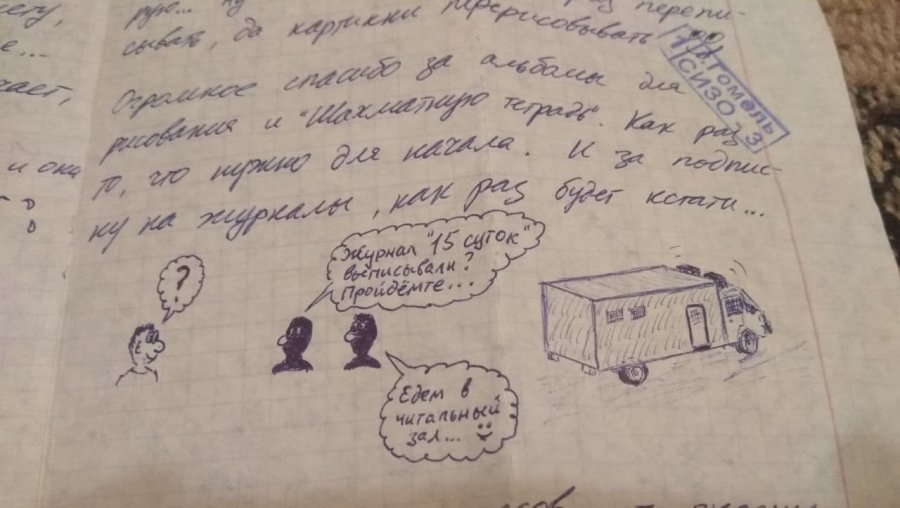 иету,
рую...
е...
сывать, да картинки перерисовывать
чает,
Огромное спасибо за альбомы для
рисования и "Шахматную тетрадь". Как раз
и она
то, что нужно для начала. И за подпис-
ку на журналы, как раз будет кстати...
г. Гомель
СИЗО-3
?
Журнал "15 суток"
выписывали?
Пройдёмте...
Едем в
читальный
зал...